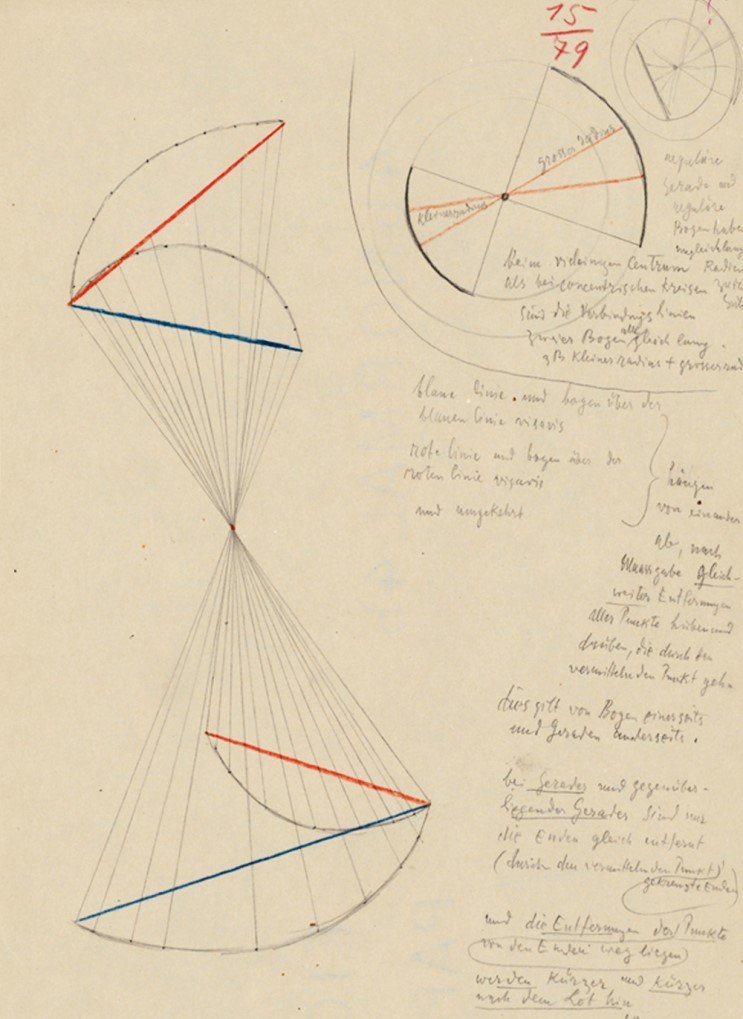 15
79
grosser radius
kleiner radius
reguläre
Gerade und
reguläre
Bogen haben
Beim Centrum Radien
als bei concentrischen Kreisen
sind die Verbindungslinien
zweier Bogen alle gleich lang.
zB Kleiner radius + grosser rad
blaue linie und bogen über der
blauen linie visavis
rote linie und bogen über der
roten linie visavis
und umgekehrt
hängen
von einander
ab, nach
Maassgabe gleich-
weiter Entfernungen
aller Punkte hüben und
drüben, die durch den
vermittelnden Punkt gehn
dies gilt von Bogen einerseits
und Geraden anderseits.
bei Gerader und gegenüber-
liegender Gerader sind nur
die Enden gleich entfernt
(durch den vermittelnden Punkt)
gekreuzte Enden
und die Entfernungen der Punkte
von den Enden weg liegen)
werden kürzer und kürzer
nach dem Lot hin